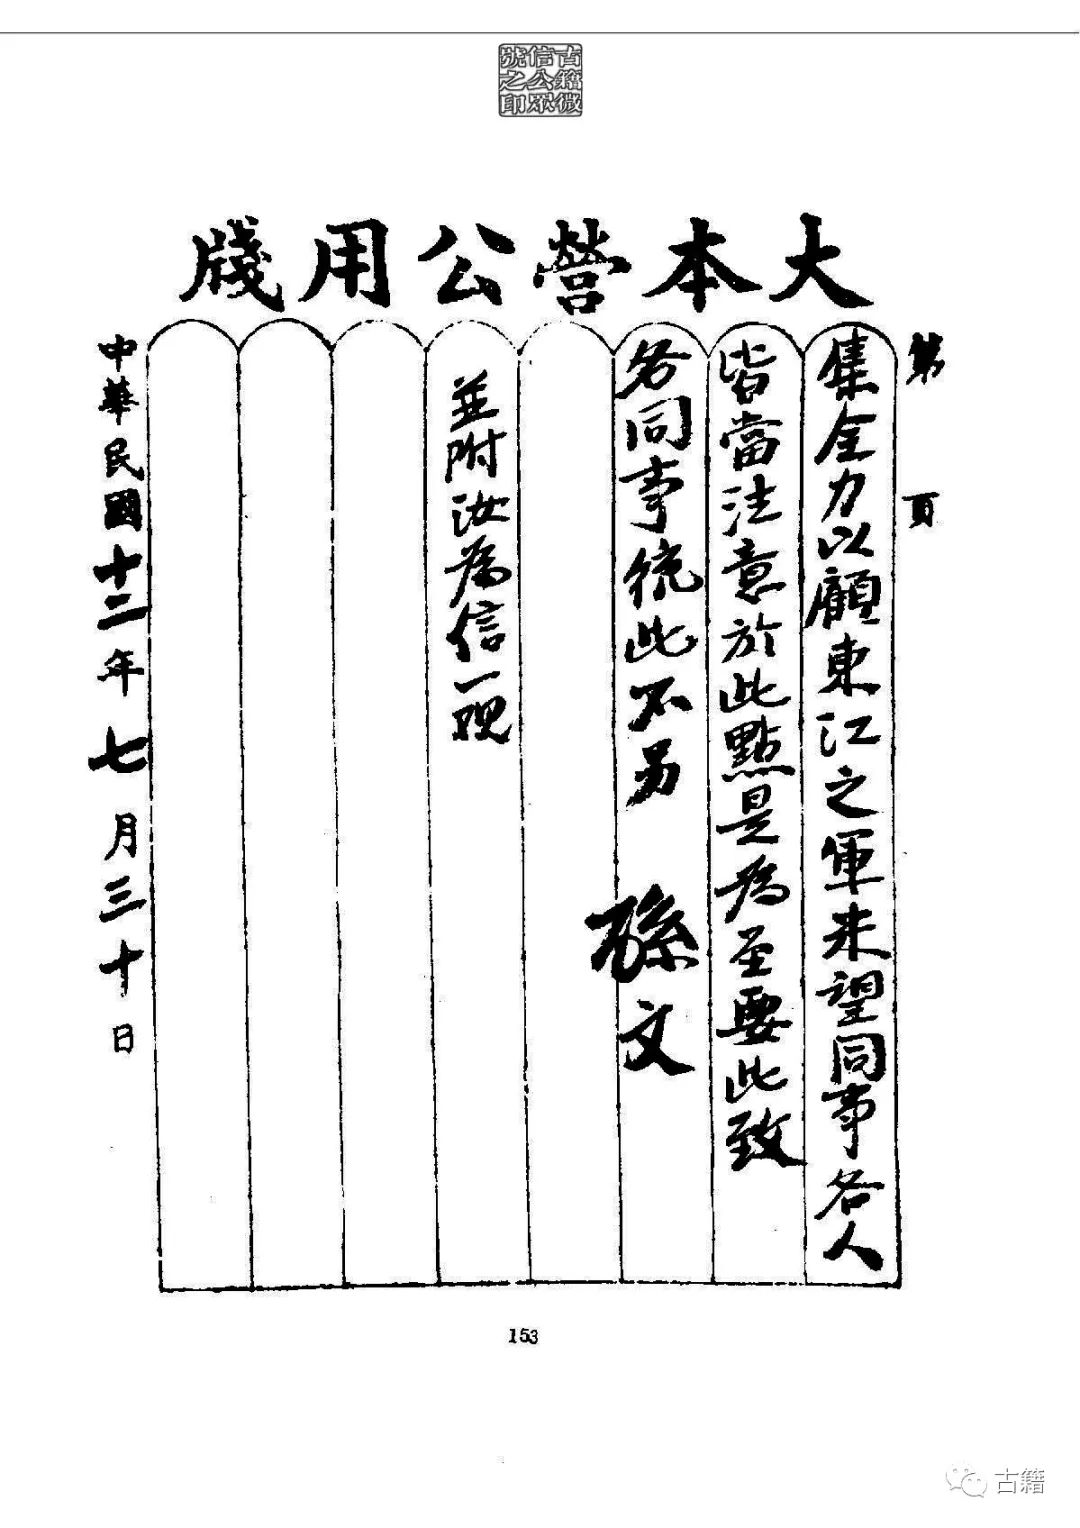 古籍微
信公眾
號之印
大本營公用牋
第 頁
集全力以顧東江之軍来望同事各人
皆當注意於此點是為至要此致
各同事統此不另 孫文
並附汝為信一
中華民國十二年七月三十日
153
古籍